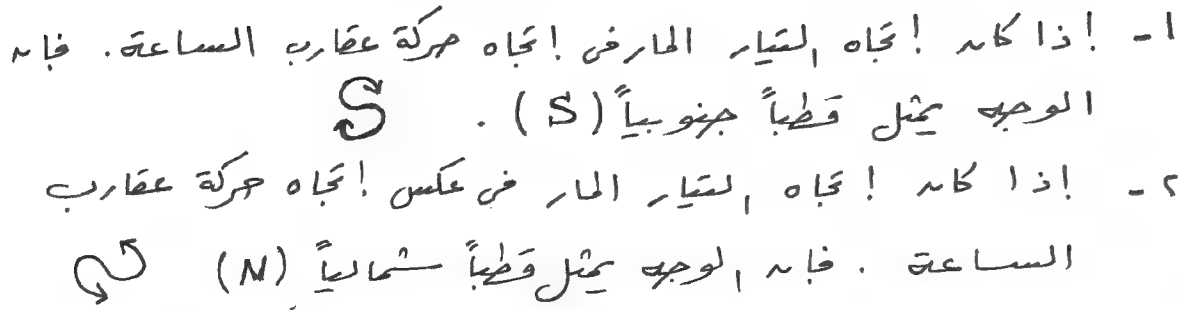 ١- إذا كان إتجاه التيار المار فى إتجاه حركة عقارب الساعة . فإن
الوجه يمثل قطباً جنوبياً (S) . S
٢- إذا كان إتجاه التيار المار فى عكس إتجاه حركة عقارب
الساعة . فإن الوجه يمثل قطباً شمالياً (N) N